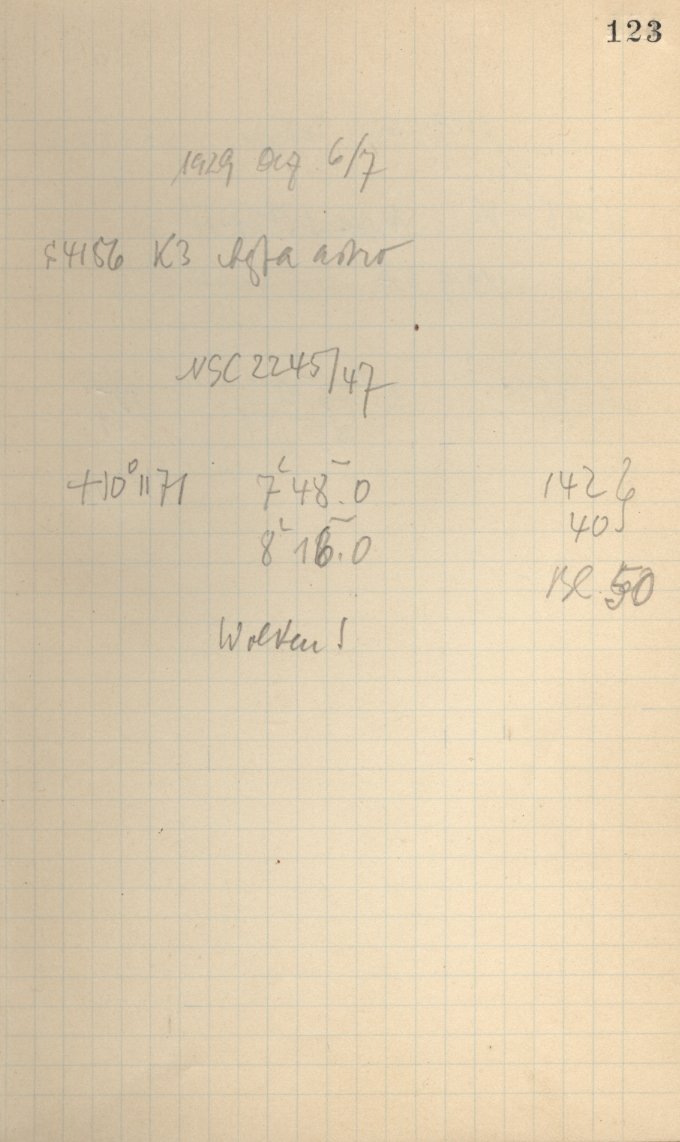 123
1929 Dez 6/7
S4156 K3 Agfa astro
NGC 2245/47
+10°1171 7ʰ48ᵐ.0 142
8ʰ16ᵐ.0 40
Bl. 50
Wolken!